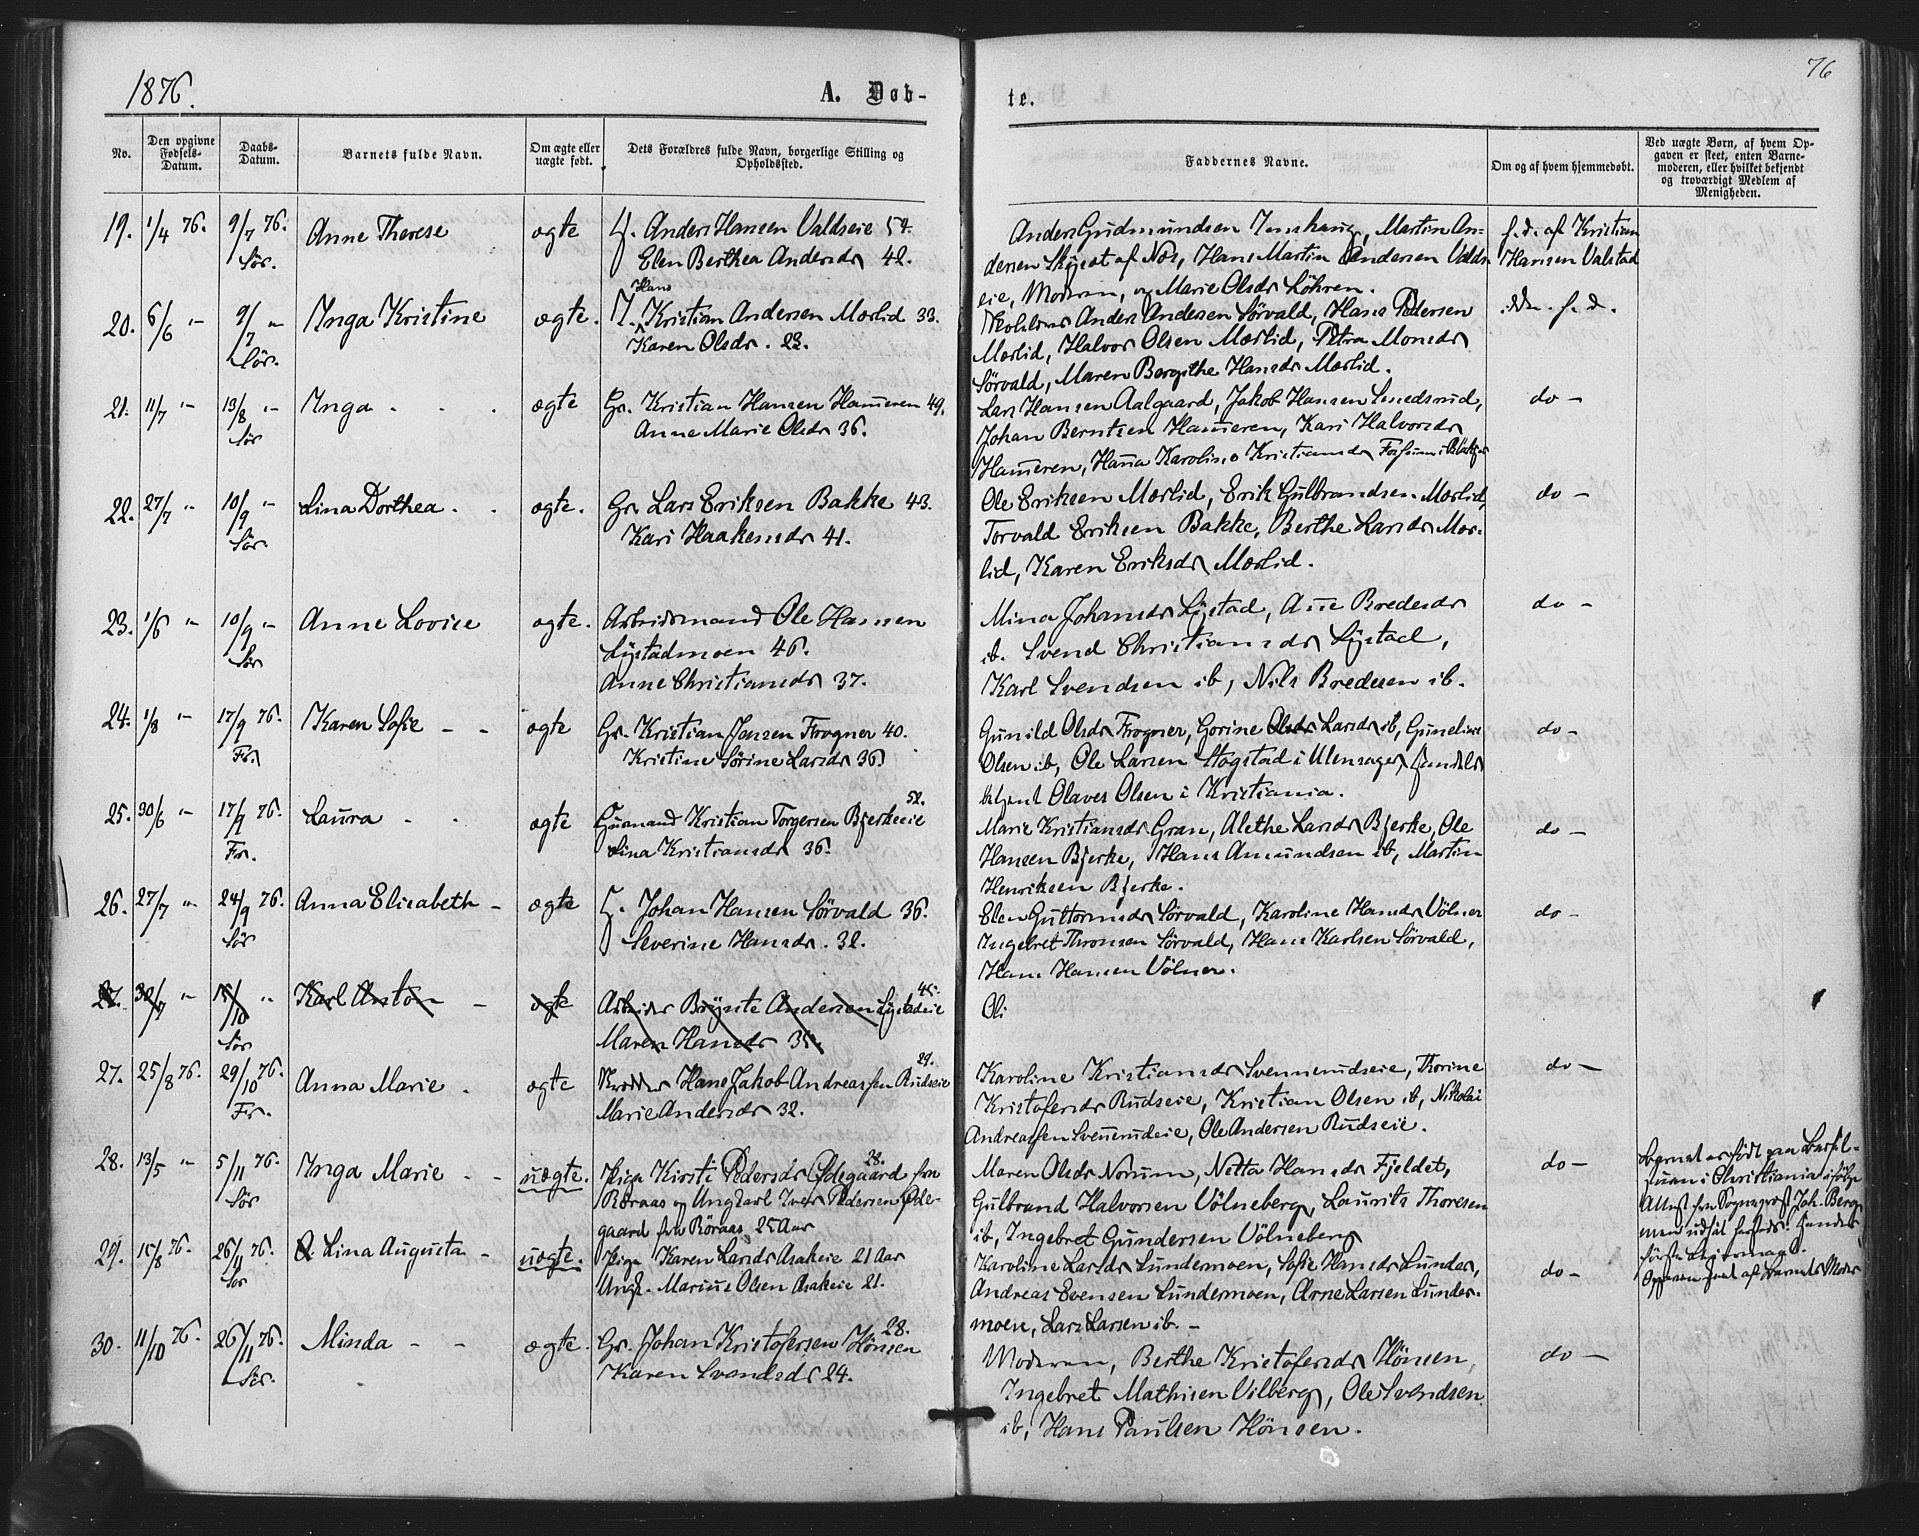 1876.
A. Døb-
te.
76
No.
Den opgivne
Fødsels-
Datum.
Daabs-
Datum.
Barnets fulde Navn.
Om ægte eller
uægte født.
Dets Forældres fulde Navn, borgerlige Stilling og
Opholdssted.
Faddernes Navne.
Om og af hvem hjemmedøbt.
Ved uægte Børn, af hvem Op-
gaven er skeet, enten Barne-
moderen, eller hvilket bekjendt
og troværdigt Medlem af
Menigheden.
19. 1/4 76. 9/7 76. Sör. Anne Therese ægte
Anders Hansen Valdseie 54.
Elen Berthea Andersdr 42.
Anders Gudmundsen, Martin An-
dersen af Næs, Hans Martin Andersen Valds-
eie, Moderen, og Marie Olsdr Löhren.
f. d. af Kristian
Hansen Valstad
20. 6/6 " 9/7 " Sör. Inga Kristine ægte.
Hans
Kristian Andersen Mørlid 33.
Karen Olsdr. 22.
Anders Andersen Sörvald, Hans Pedersen
Mørlid, Halvor Olsen Mørlid, Petra Monsdr
Sörvald, Maren Bergithe Hansdr Mørlid.
f. d.
21. 11/7 " 13/8 " Sör Inga ægte
Gr. Kristian Hansen Hameren 49.
Anne Marie Olsdr 36.
Lars Hansen Aalgaard, Jakob Hansen Smedsrud,
Johan Berntsen Hameren, Kari Halvorsdr
Hameren, Hana Karolis. Kristiansdr Fossum i
do -
22. 27/7 " 10/9 " Sör. Lina Dorthea ægte.
Gr. Lars Eriksen Bakke 43.
Kari Haakensdr 41.
Ole Eriksen Mørlid, Erik Gulbrandsen Mørlid,
Torvald Eriksen Bakke, Berthe Larsdr Mør-
lid, Karen Eriksdr Mørlid.
do -
23. 1/6 " 10/9 " Sör Anne Lovise ægte.
Arbeidsmand Ole Hansen
Lystadmoen 46.
Anne Christiansdr 37.
Mina Johansdr Lystad, Ane Bredesdr
ib. Svend Christiansdr Lystad,
Karl Svendsen ib, Nils Bredesen ib.
do -
24. 1/8 " 17/9 76. Fr. Karen Sofie - - ægte
Gr. Kristian Jensen Frogner 40.
Kristine Sörine Larsdr 36.
Gunild Olsdr Frogner, Gorine Olsdr Larsdr ib, Guneline
Olsen ib, Ole Larsen Hogstad i Ulensager, Handels
betjent Olaves Olsen i Kristiania.
do -
25. 30/6 " 17/9 76. Fr. Laura ægte
52.
Husmand Kristian Torgersen Bjerkeeie
Lina Kristiansdr 36.
Marie Kristiansdr Gran, Alethe Larsdr Bjerke, Ole
Hansen Bjerke, Hans Amundsen ib, Martin
Henriksen Bjerke.
do -
26. 27/7 " 24/9 76. Sör Anna Elisabeth - ægte
Johan Hansen Sörvald 36.
Severine Hansdr. 32.
Elen Guttormsdr Sörvald, Karoline Hansdr Völner
Ingebret Thronsen Sörvald, Hans Karlsen Sörvald,
Hans Hansen Völner.
do -
27. 30/7 " 15/10 " Sör Karl Anton - ægte
45.
Arbeider Andersen Lystadeie
Maren Hansdr 35.
Oli
27. 25/8 76. 29/10 76. Fr. Anna Marie ægte
29.
Hans Jakob Andreassen Rudseie
Marie Andersdr 32.
Karoline Kristiansdr Svennerudseie, Thorine
Kristofersdr Rudseie, Kristian Olsen ib, Nikolai
Andreassen Svenerudeie, Ole Andersen Rudseie.
do -
28. 13/5 " 5/11 76. Sör Inga Marie - - uægte.
28.
Pige Kirsti Pedersdr Ödegaard fra
Röraas og Ungkarl Iver Pedersen Öde-
gaard fra Röraas 25 Aar
Maren Olsdr Norum, Netta Hansdr Fjeldet,
Gulbrand Halvorsen Völneberg, Laurits Thoresen
ib, Ingebret Gundersen Völneberg
do -
Barnet er födt paa Barsel-
stuen i Christiania ifölge
Attest fra Sogneprest Joh. Berg
men
förste Leiermaal.
29. 15/8 76. 26/11 76. Sör Lina Augusta - uægte.
Pige Karen Larsdr Asakeie 21 Aar
Ungk. Marius Olsen Asakeie 21.
Karoline Larsdr Lundermoen, Sofie Hansdr Lunder,
Andreas Evensen Lundermoen, Arne Larsen Lunder-
moen, Lars Larsen ib. -
do -
Opgaven af Barnets Moder
30. 11/10 76. 26/11 76. Sör. Minda - - ægte.
28.
Gr. Johan Kristofersen Hönsen
Karen Svendsdr 24.
Moderen, Berthe Kristofersdr Hönsen,
Ingebret Mathisen Vilberg, Ole Svendsen
ib, Hans Paulsen Hönsen.
do -